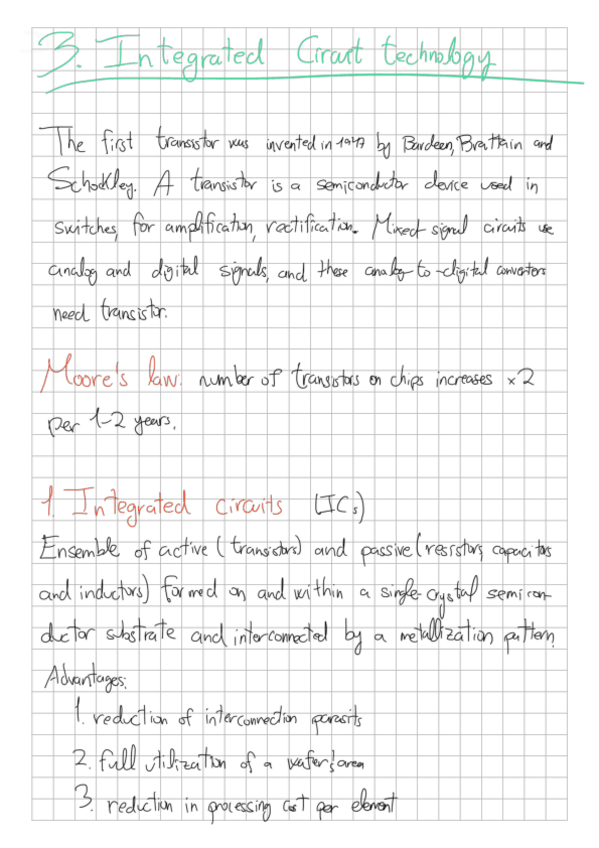 3. Integrated Circuit technology
The first transistor was invented in 1947 by Bardeen, Brattain and
Schockley. A transistor is a semiconductor device used in
switches, for amplification, rectification. Mixed signal circuits use
analog and digital signals, and these analog-to-digital convertors
need transistor.
Moore's law: number of transistors on chips increases ×2
per 1-2 years.
1. Integrated circuits (ICs)
Ensemble of active (transistors) and passive (resistors, capacitors
and inductors) formed on and within a single-crystal semicon-
ductor substrate and interconnected by a metallization pattern.
Advantages:
1. reduction of interconnection parasits
2. full utilization of a wafer's area
3. reduction in processing cost per element